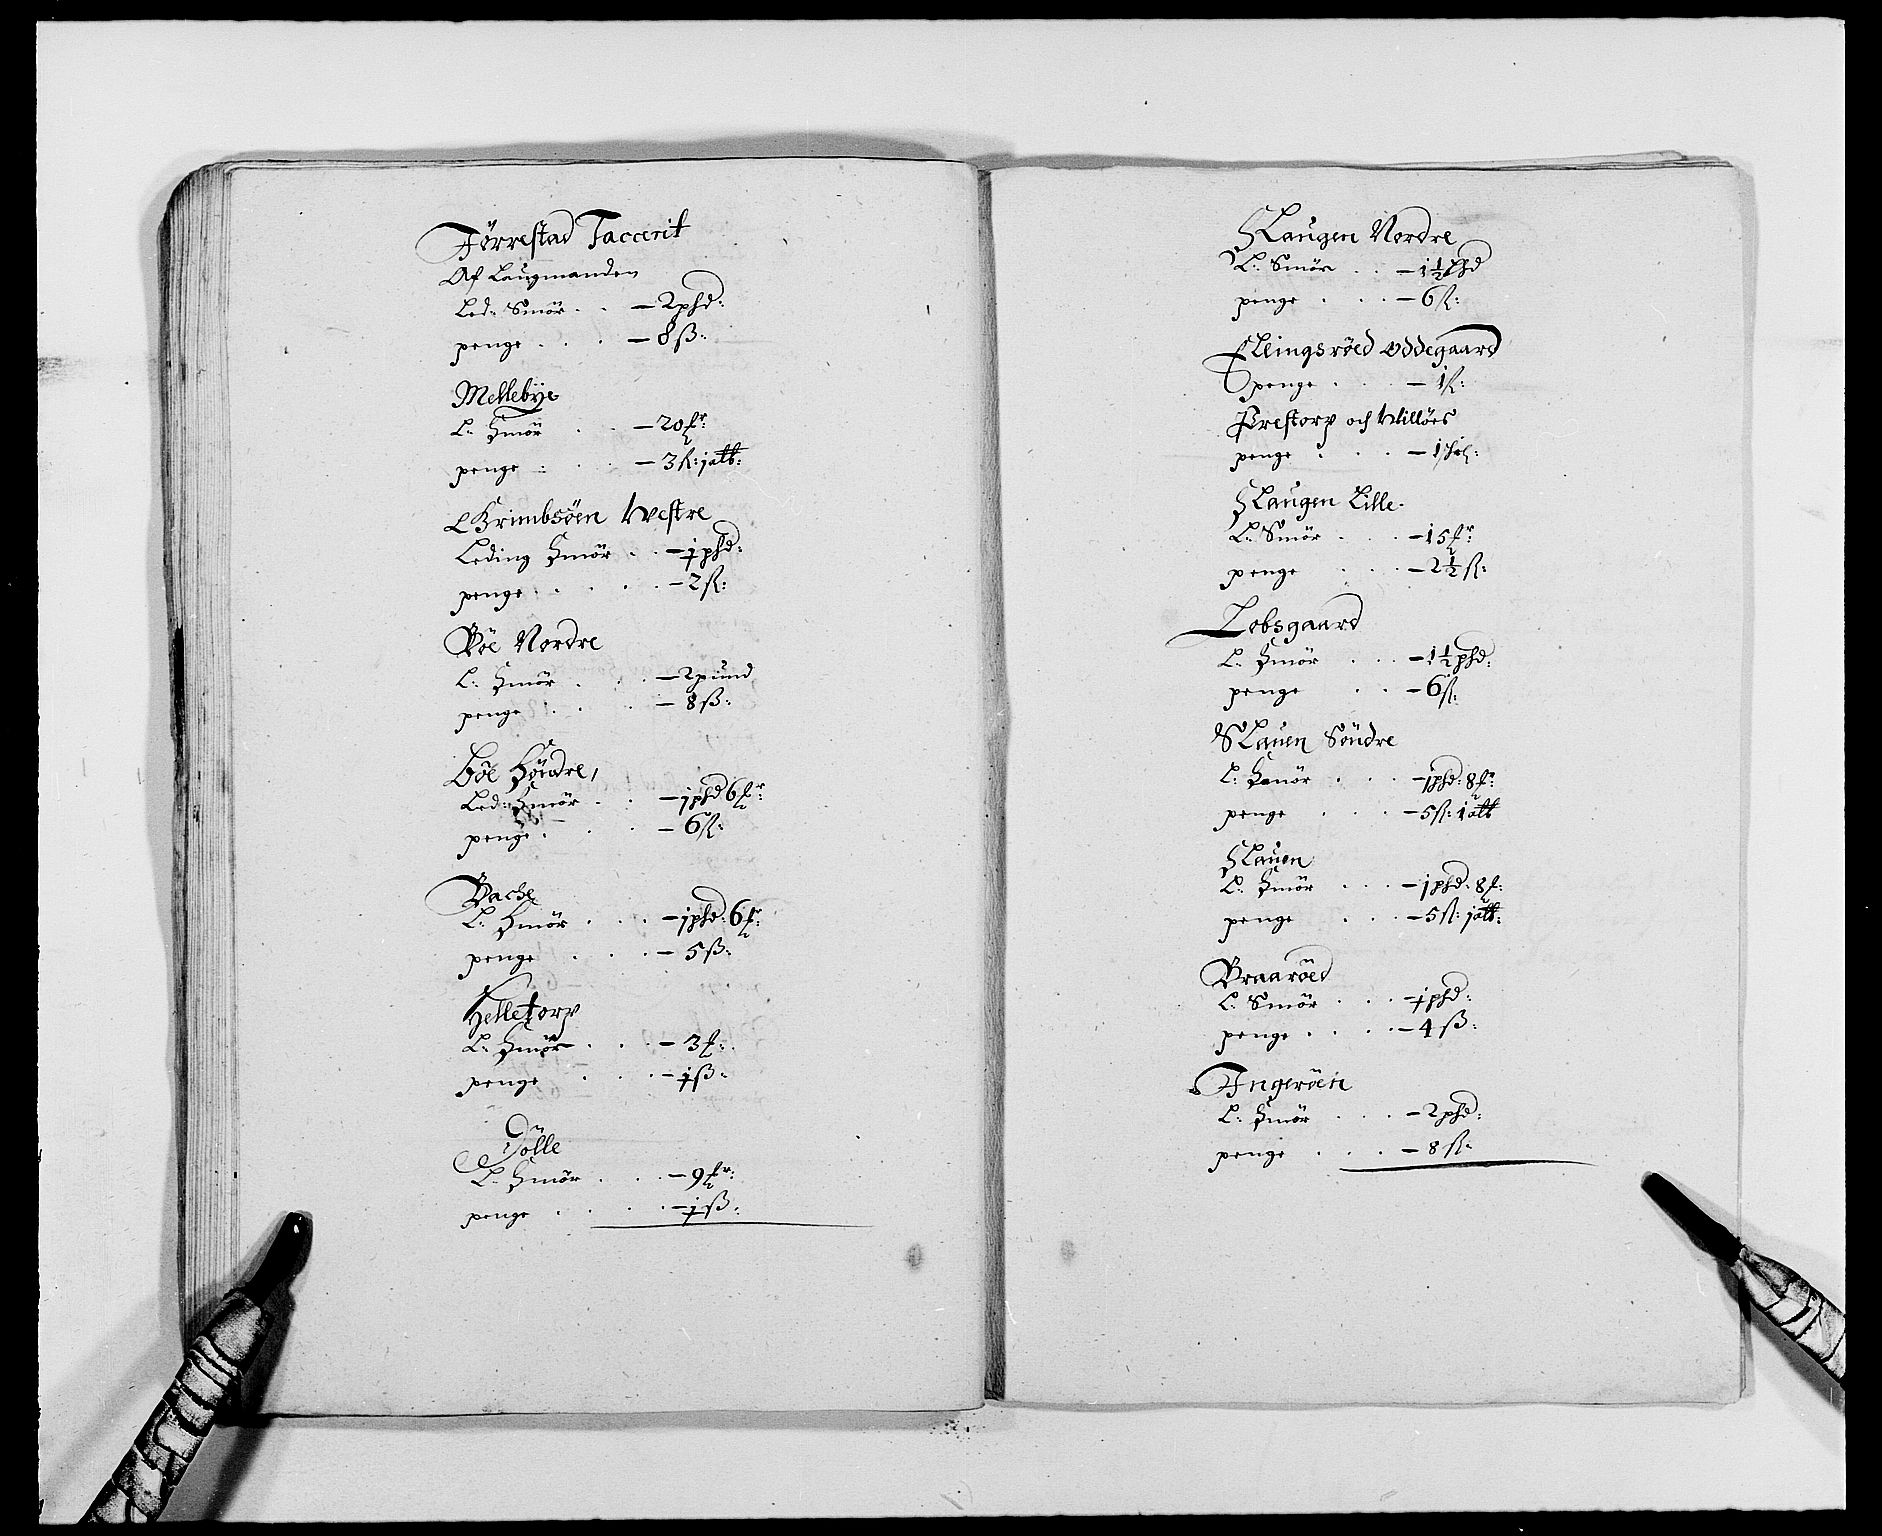 Tørrestad Taccerit
Af Laugmanden
Led: Smör . . — 2 phd:
penge . . . — 8 ß:
Mellebye
L: Smör . . — 20 fr:
penge . . . — 3 ß: j alb:
Grimbsöen Westre
Leding Smör . . — j phd:
penge . . . . — 2 ß:
Böe Nordre
L: Smör . . . — 2 pund
penge . . . — 8 ß:
Böe Söndre,
Led: Smör . . — j phd 6 fr:
penge . . . — 6 ß:
Bache
L: Smör . . . — j phd: 6 fr:
penge . . . — 5 ß:
Helletorp
L: Smör . . . — 3 f:
penge . . . — j ß:
Dölle
L: Smör . . . — 9 fr:
penge . . . . — j ß:
Slaugen Nordre
L: Smör . . — 1½ phd
penge . . . — 6 ß:
Ellingsröed Oddegaard
penge . . . — 1 ß:
Prestorp och Willöes
penge . . . —
Slaugen Lille.
L: Smör . . . — 15 fr:
penge . . . — 2½ ß:
Lobsgaard
L: Smör . . . — 1½ phd:
penge . . — 6 ß:
Slauen Söndre
L: Smör . . . — 1 phd: 8 fr:
penge . . . — 5 ß: 1 alb
Slauen
L: Smör . . . — j phd: 8 f:
penge . . . — 5 ß: j alb:
Braaröed
L: Smör . . . — j phd:
penge . . . . — 4 ß:
Ingeröen
L: Smör . . . — 2 phd:
penge . . . — 8 ß: